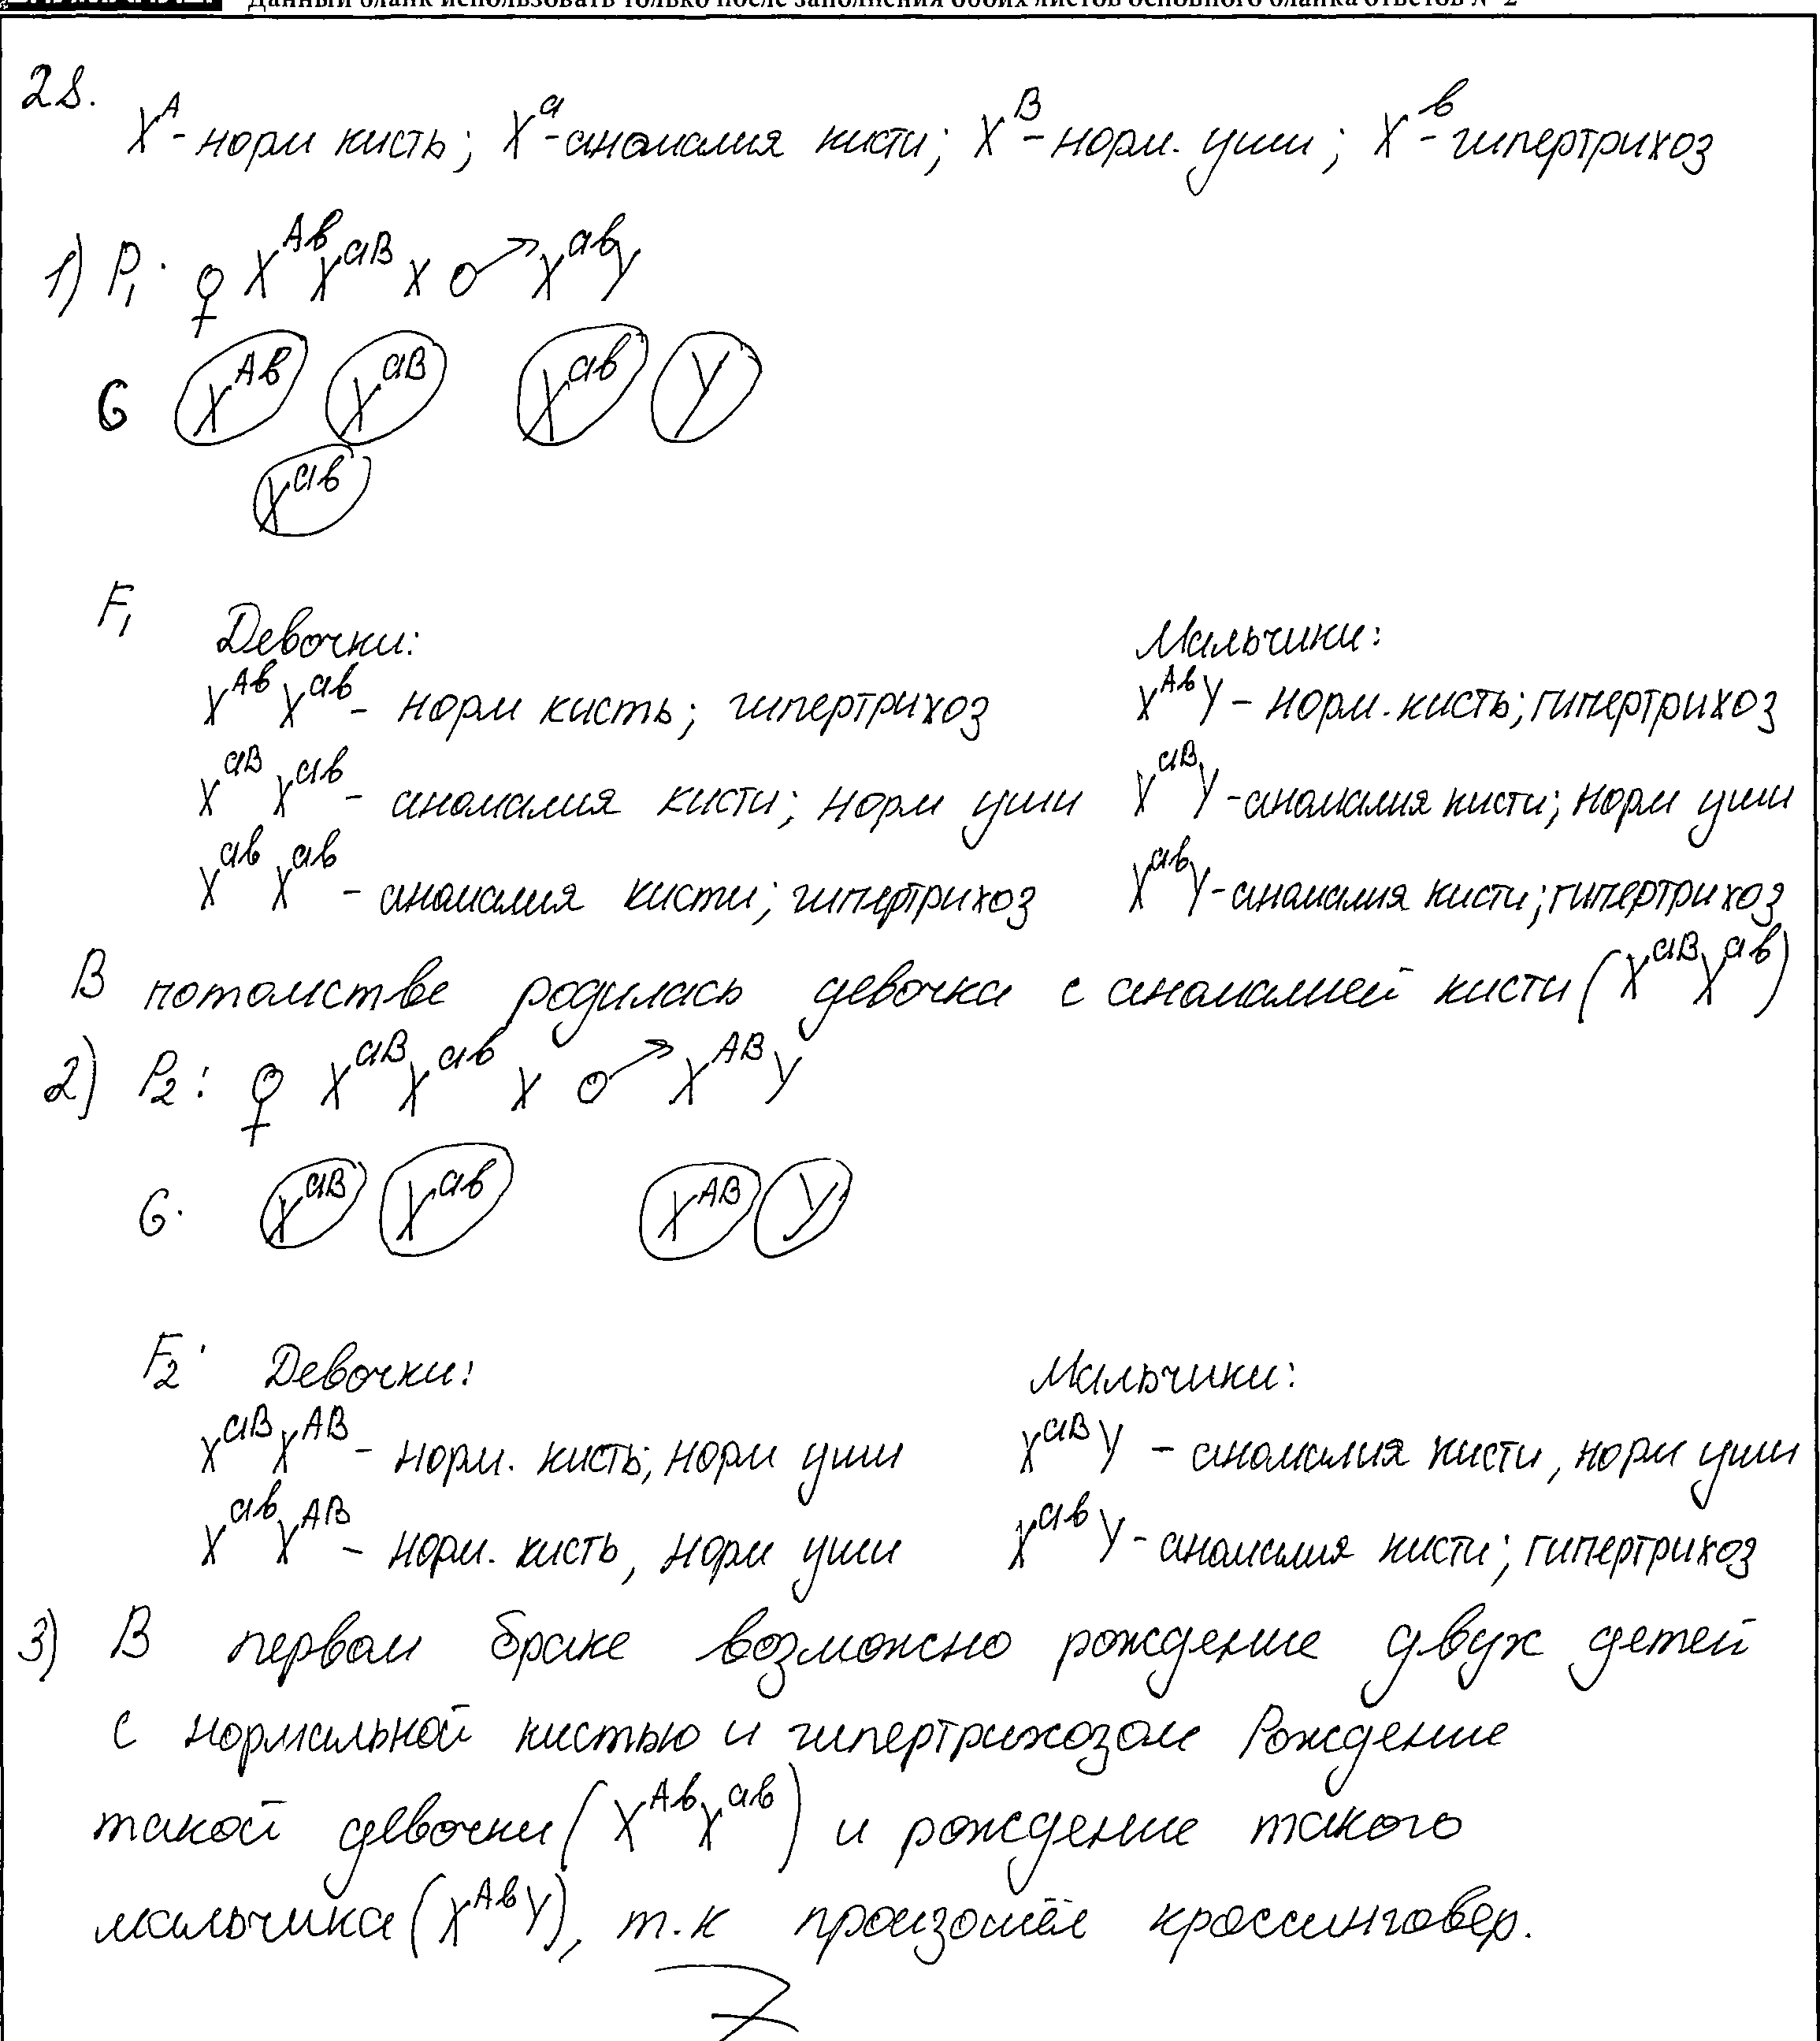 Данный бланк использовать только после заполнения обоих листов основного бланка ответов № 2
28.
X^A - норм кисть; X^a - аномалия кисти; X^B - норм. уши; X^b - гипертрихоз
1) P₁: ♀ X^Ab X^aB x ♂ X^ab Y
G X^Ab X^aB X^ab Y
X^ab
F₁ Девочки: Мальчики:
X^Ab X^ab - норм кисть; гипертрихоз X^Ab Y - норм. кисть; гипертрихоз
X^aB X^ab - аномалия кисти; норм уши X^aB Y - аномалия кисти; норм уши
X^ab X^ab - аномалия кисти; гипертрихоз X^ab Y - аномалия кисти; гипертрихоз
В потомстве родилась девочка с аномалией кисти (X^aB X^ab)
2) P₂: ♀ X^aB X^ab x ♂ X^AB Y
G. X^aB X^ab X^AB Y
F₂: Девочки: Мальчики:
X^aB X^AB - норм. кисть; норм уши X^aB Y - аномалия кисти, норм уши
X^ab X^AB - норм. кисть, норм уши X^ab Y - аномалия кисти; гипертрихоз
3) В первом браке возможно рождение двух детей
с нормальной кистью и гипертрихозом Рождение
такой девочки (X^Ab X^ab) и рождение такого
мальчика (X^Ab Y), т.к произошёл кроссинговер.